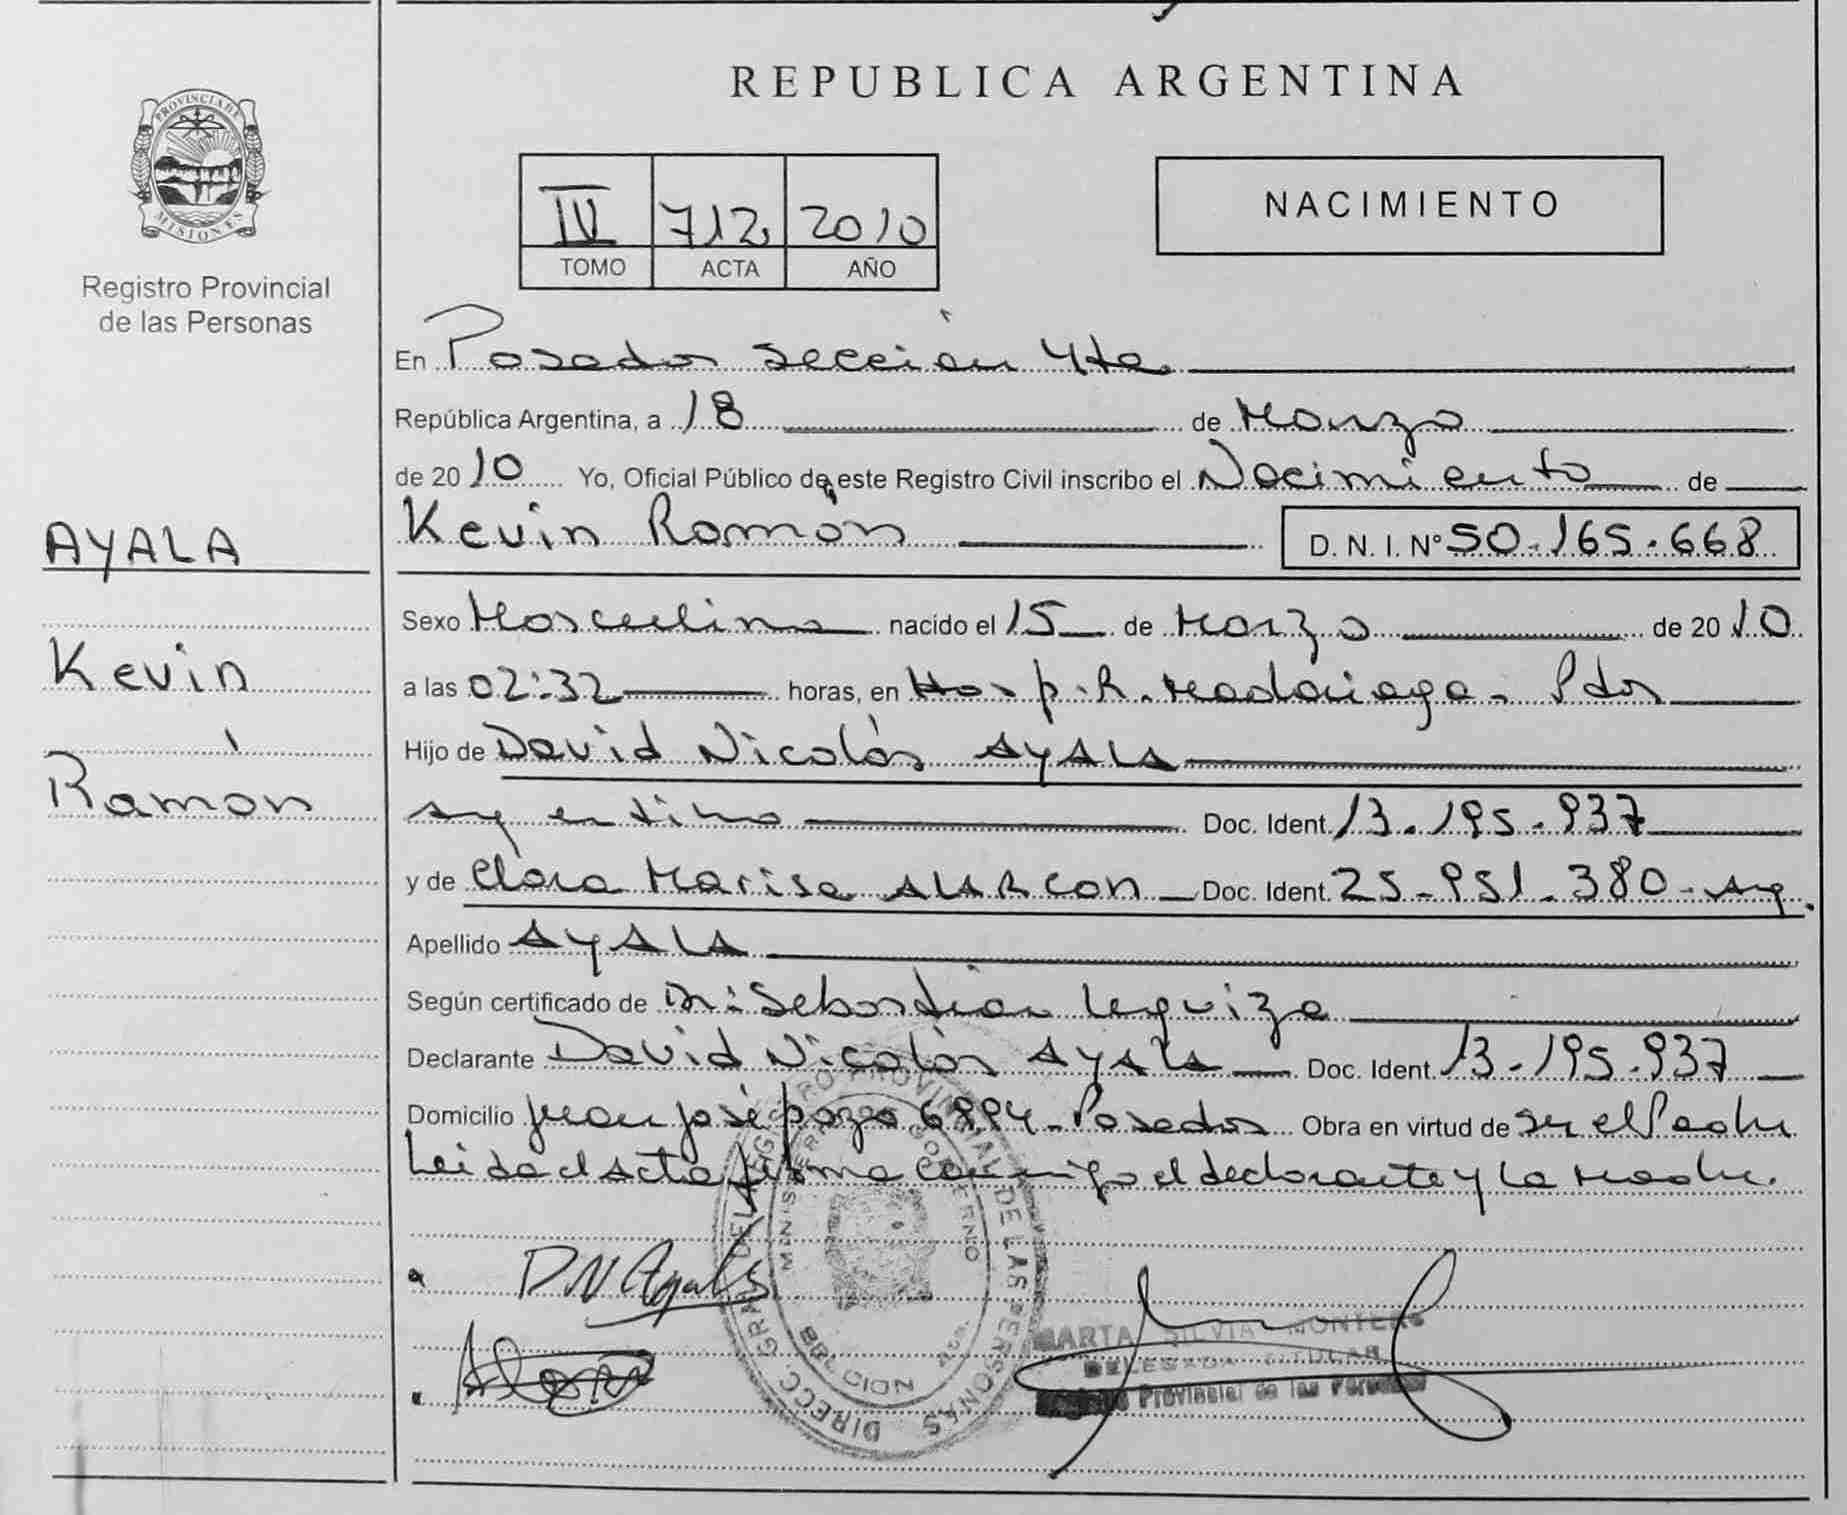 REPUBLICA ARGENTINA
PROVINCIA DE MISIONES
Registro Provincial
de las Personas
IV 712 2010
TOMO ACTA AÑO
NACIMIENTO
En Posadas sección 4ta.
República Argentina, a 18 de Marzo
de 2010 Yo, Oficial Público de este Registro Civil inscribo el Nacimiento de
Kevin Ramón D. N. I. N° 50.165.668
AYALA
Kevin
Ramón
Sexo Masculino nacido el 15 de Marzo de 2010
a las 02:32 horas, en Hosp. R. Madariaga - Pdas
Hijo de David Nicolás AYALA
argentino Doc. Ident. 13.195.937
y de Clara Marisa ALARCON Doc. Ident. 25.951.380 - arg.
Apellido AYALA
Según certificado de Dr: Sebastian Leguiza
Declarante David Nicolás AYALA Doc. Ident. 13.195.937
Domicilio Juan José pazo 6894 - Posadas Obra en virtud de ser el Padre
Leida el acta firma conmigo el declarante y la madre.
DN Ayala
MARTA SILVIA MONTERO
DELEGADA TITULAR
Provincial de las Personas
DIRECC. GRAL. DEL REGISTRO PROVINCIAL DE LAS PERSONAS
MINISTERIO GOBIERNO